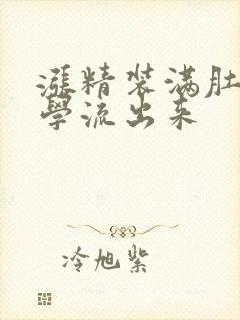 漲精装满肚
學流出来
冷旭紫